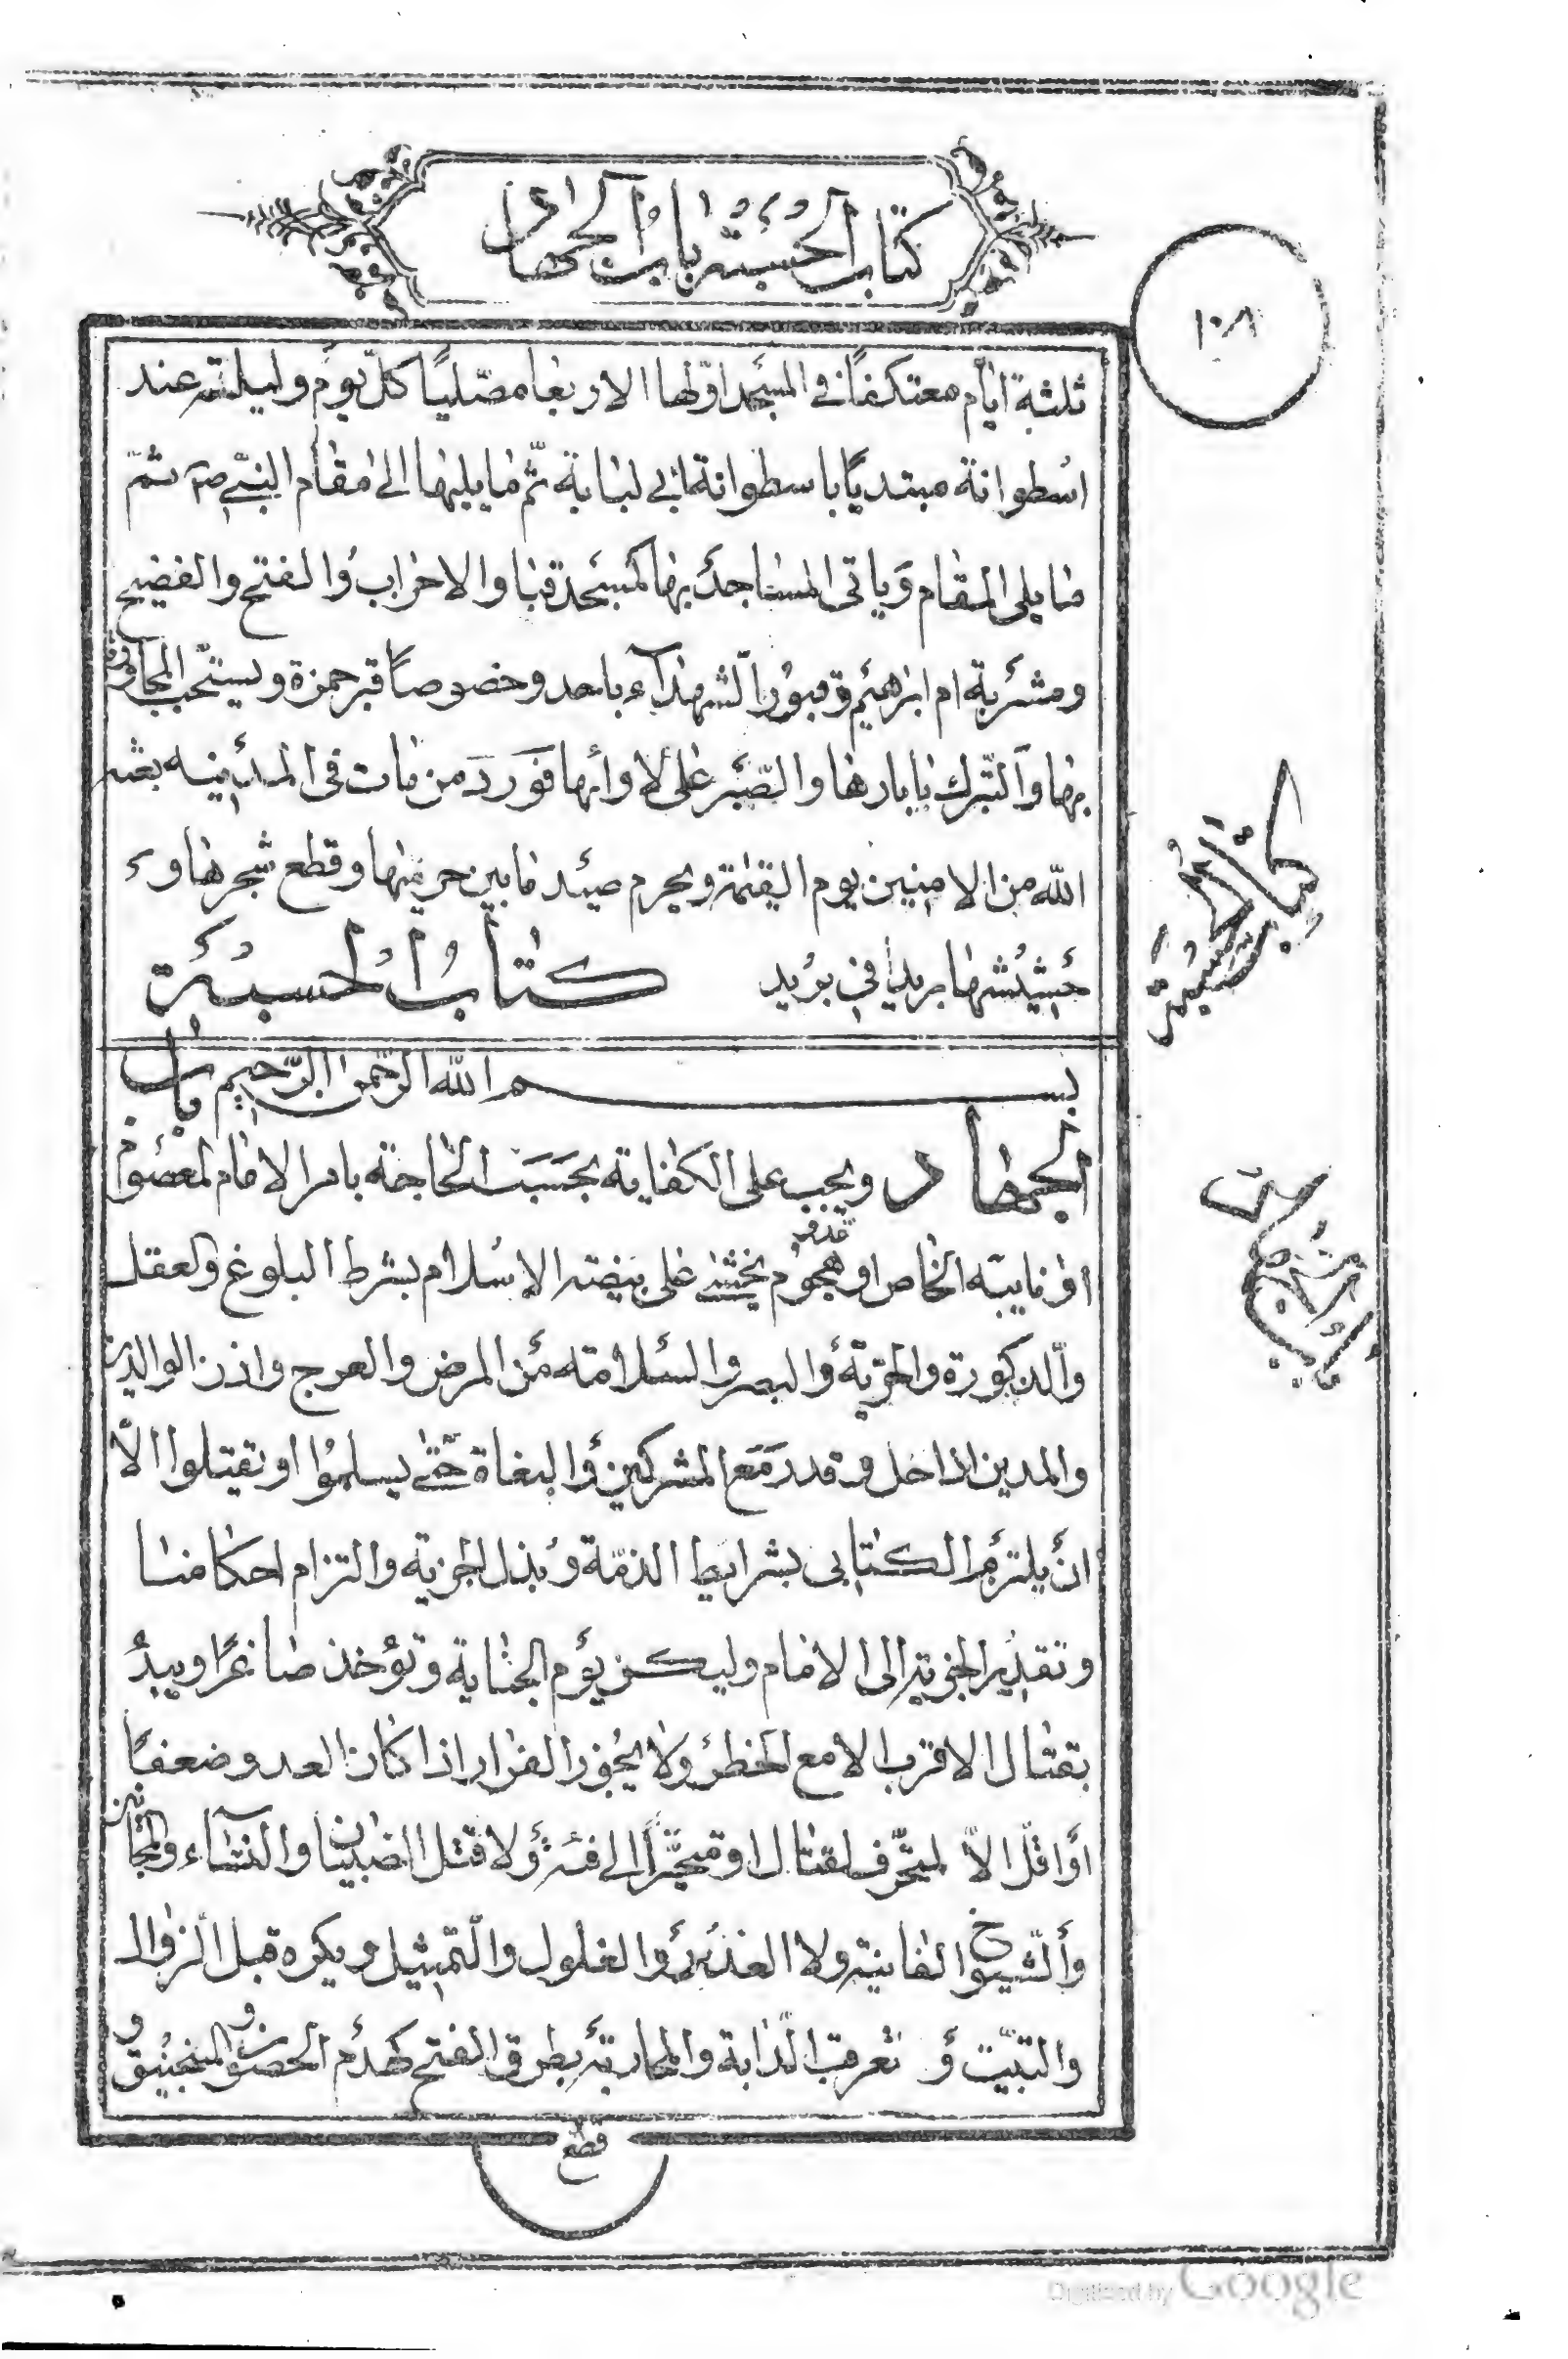 كتاب الحسبة باب الجهاد
١٠٨
ثلثة ايام معتكفا في المسجد اولها الاربعا مصليا كل يوم وليلة عند
اسطوانة مبتديا باسطوانة ابي لبابة ثم ما يليها الى مقام النبي ص ثم
ما يلي المقام وياتى المساجد بها كمسجد قبا والاحزاب والفتح والفضيح
ومشربة ام ابرهيم وقبور الشهداء باحد وخصوصا قبر حمزة ويستحب المجاورة
بها والتبرك بابارها والصبر على لاوائها فورد من مات في المدينه بعثه
الله من الامنين يوم القيمة ويحرم صيد ما بين حرميها وقطع شجرها و
حشيشها بريدا في بريد كتاب الحسبة
بسم الله الرحمن الرحيم باب
الجهاد ويجب على الكفاية بحسب الحاجة بامر الامام المعصوم
او نايبه الخاص او هجوم عدو يخشى على بيضة الاسلام بشرط البلوغ والعقل
والذكورة والحرية والبصر والسلامته من المرض والعرج واذن الوالدين
والمدين اذا حل وقدر مع المشركين والبغاة حتى يسلموا او تقتلوا الا
ان يلتزم الكتابى بشرايط الذمة وبذل الجزية والتزام احكامنا
وتقدير الجزية الى الامام وليكن يوم الجناية وتؤخذ صاغرا ويبدُ
بقتال الاقرب الا مع الخطر ولا يجوز الفرار اذا كان العدو ضعفا
او اقل الا لمتحرف لقتال او متحيزا الى فئة ولا قتل الصبيان والنساء والمجانين
والشيوخ الفانية ولا الغدر والغلول والتمثيل ويكره قبل الزوال
والتبيت و تعرقب الدابة والمحاربة بطرق الفتح كهدم الحصون والمنجنيق و
قطع
كتاب الحسبة
باب الجهاد
Digitized by Google